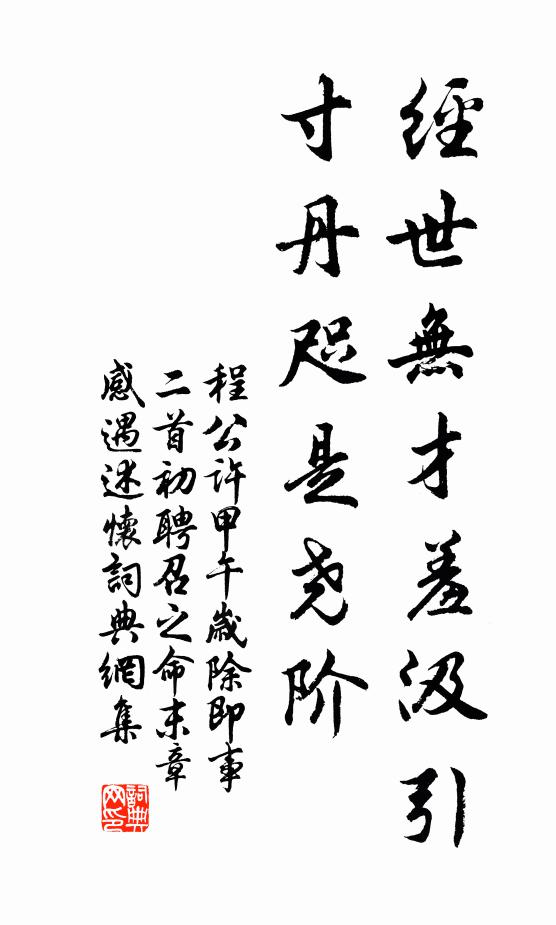 經世無才羞汲引
寸丹咫是尧阶
程公許甲午歲除即事
二首初聘召之命末章
感遇述懷詞典網集
詞典网印